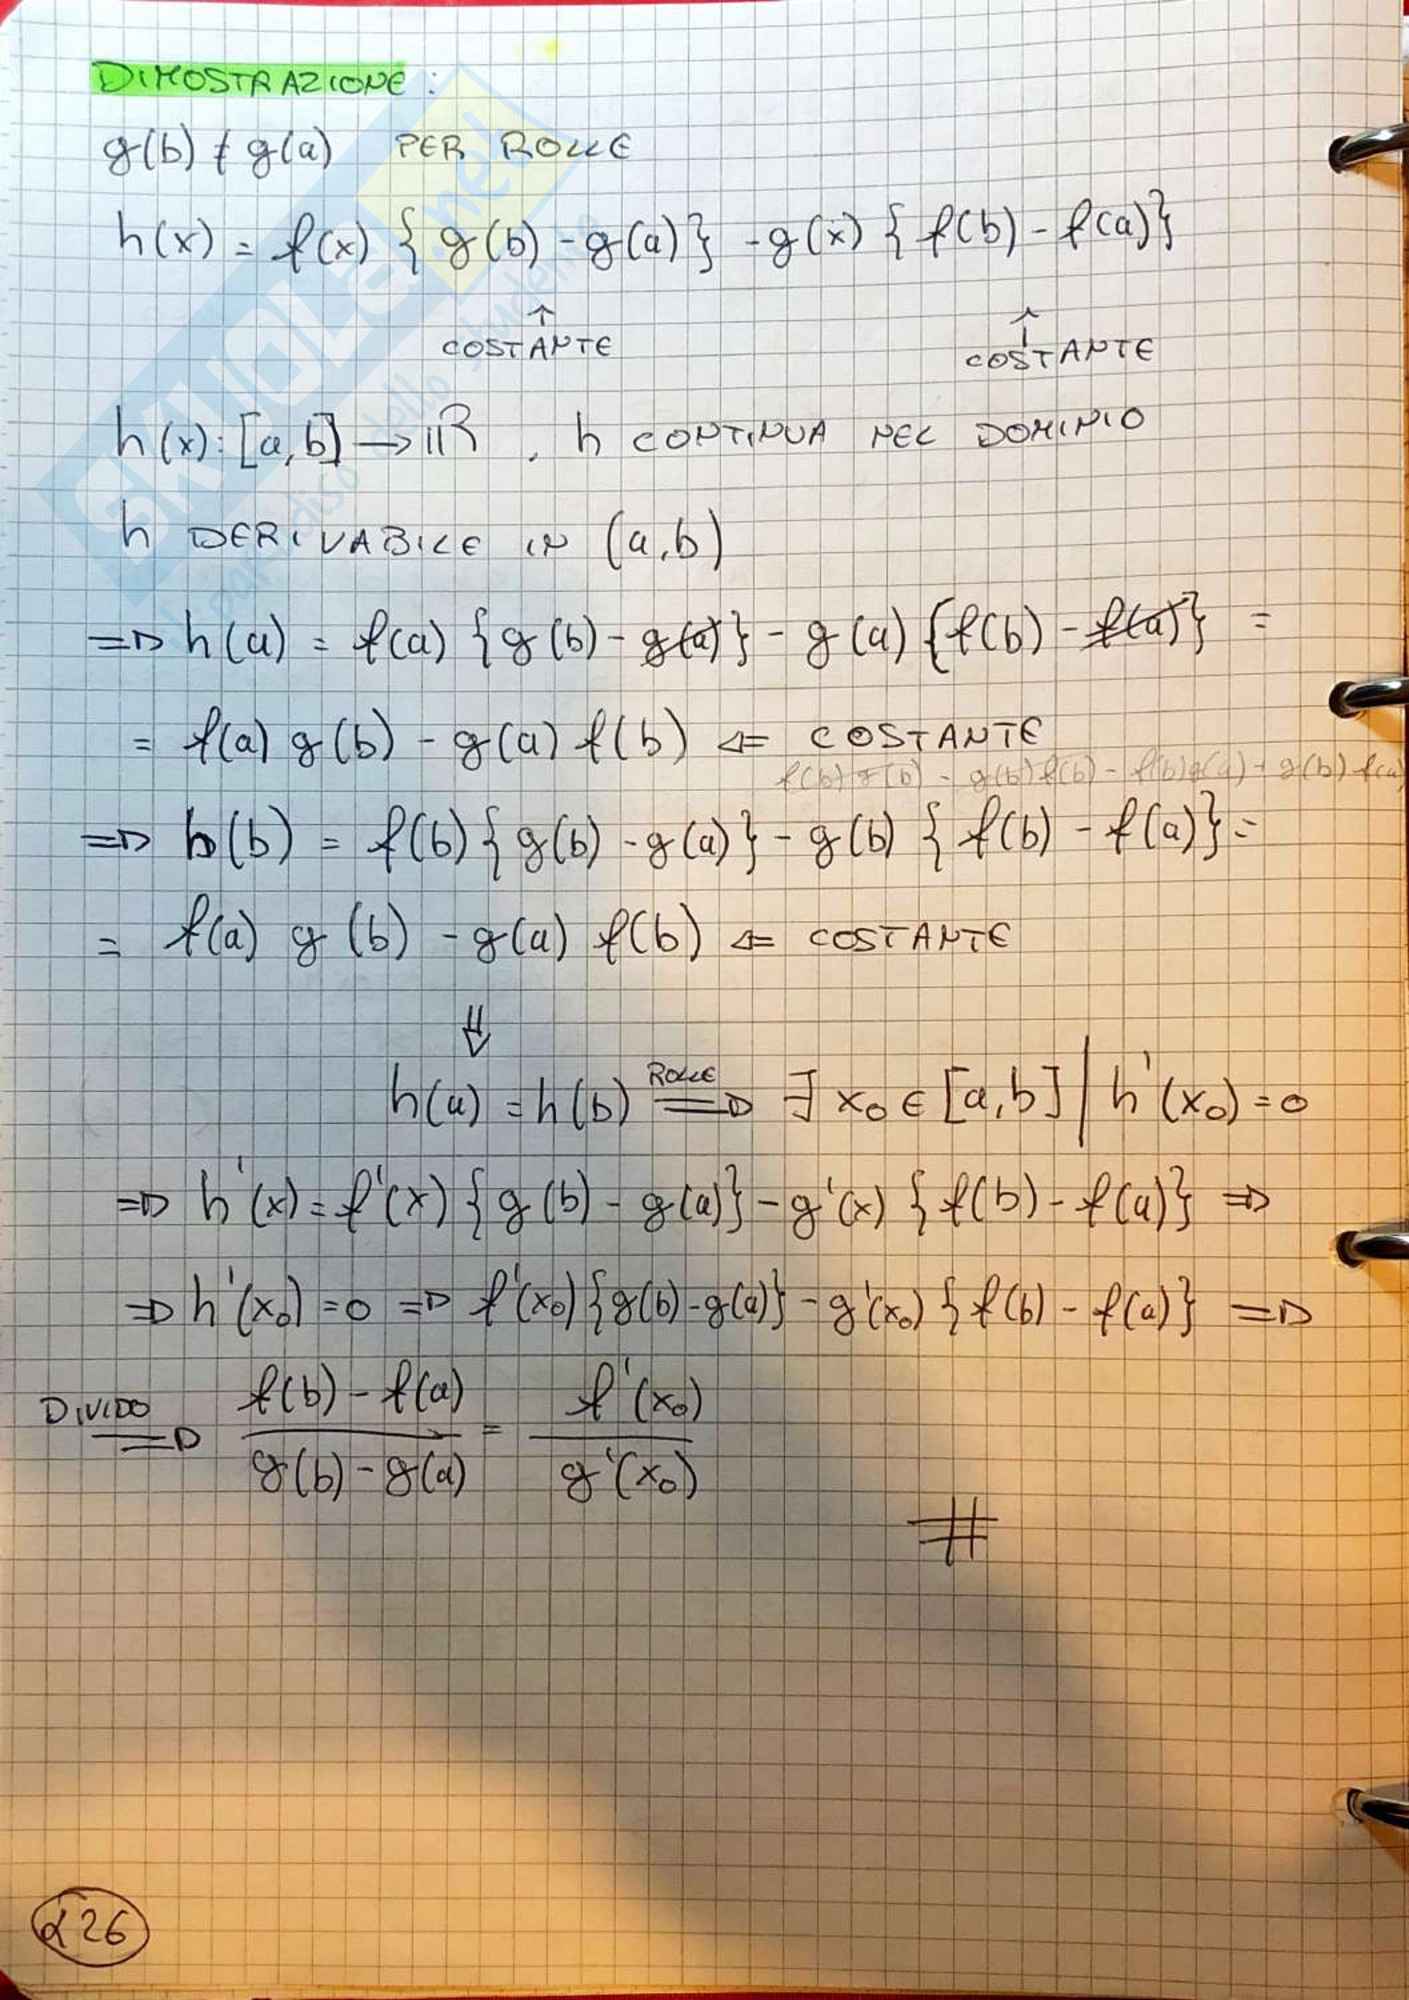 DIMOSTRAZIONE :
g(b) ≠ g(a) PER ROLLE
h(x) = f(x) { g(b) - g(a)} - g(x) { f(b) - f(a)}
↑ ↑
COSTANTE COSTANTE
h(x): [a,b] → ℝ , h CONTINUA NEL DOMINIO
h DERIVABILE IN (a,b)
⇒ h(a) = f(a) {g(b) - g(a)} - g(a) {f(b) - f(a)} =
= f(a) g(b) - g(a) f(b) ⇐ COSTANTE
f(b) g(b) - g(b) f(b) - f(b) g(a) + g(b) f(a)
⇒ h(b) = f(b) {g(b) - g(a)} - g(b) { f(b) - f(a)} =
= f(a) g(b) - g(a) f(b) ⇐ COSTANTE
⇓
ROLLE
h(a) = h(b) ⇒ ∃ x₀ ∈ [a,b] | h'(x₀) = 0
⇒ h'(x) = f'(x) {g(b) - g(a)} - g'(x) { f(b) - f(a)} ⇒
⇒ h'(x₀) = 0 ⇒ f'(x₀) {g(b) - g(a)} - g'(x₀) { f(b) - f(a)} ⇒
DIVIDO f(b) - f(a) f'(x₀)
⇒ = 
g(b) - g(a) g'(x₀)
#
226
SKUOLA.net